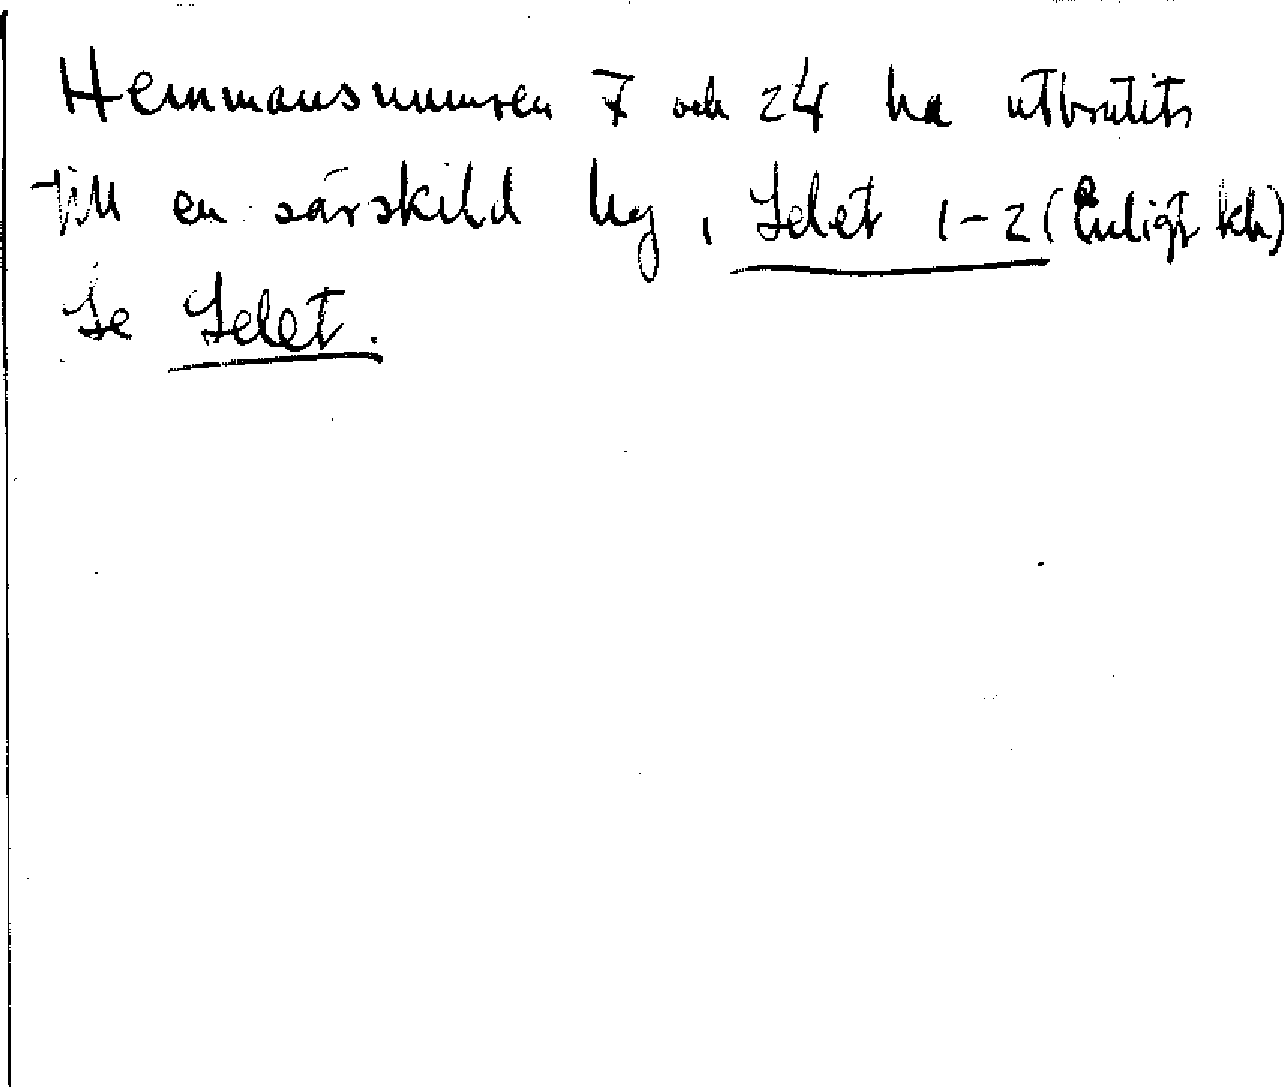 Hemmansnumren 7 och 24 ha utbrutits
till en särskild by, Selet 1-2 (Enligt kb)
Se Selet.